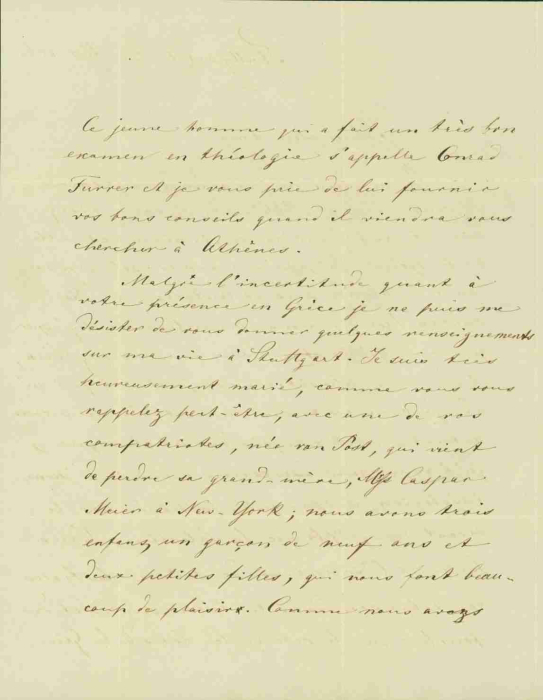 Ce jeune homme qui a fait un très bon
examen en théologie s'appelle Conrad
Furrer et je vous prie de lui fournir
vos bons conseils quand il viendra vous
chercher à Athènes.
Malgré l'incertitude quant à
votre présence en Grèce je ne puis me
désister de vous donner quelques renseignements
sur ma vie à Stuttgart. Je suis très
heureusement marié, comme vous vous
rappelez peut-être, avec une de vos
compatriotes, née van Post, qui vient
de perdre sa grand-mère, Mss Caspar
Meier à New-York; nous avons trois
enfans, un garçon de neuf ans et
deux petites filles, qui nous font beau-
coup de plaisir. Comme nous avons